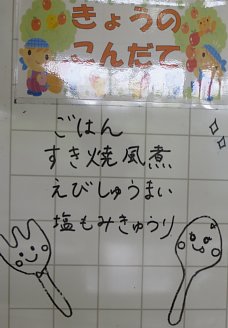 きょうの
こんだて
ごはん
すき焼風煮
えびしゅうまい
塩もみきゅうり